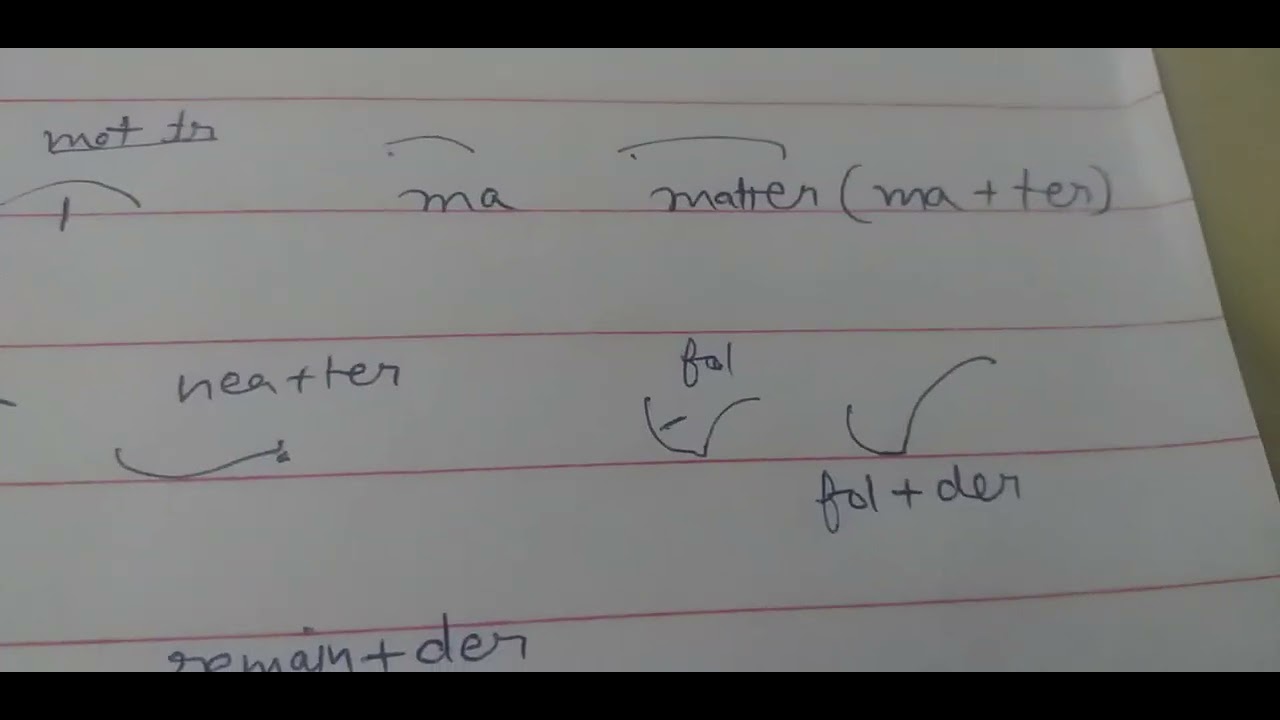 mot tr
ma matter (ma + ter)
nea+ter
fol
fol + der
remain + der